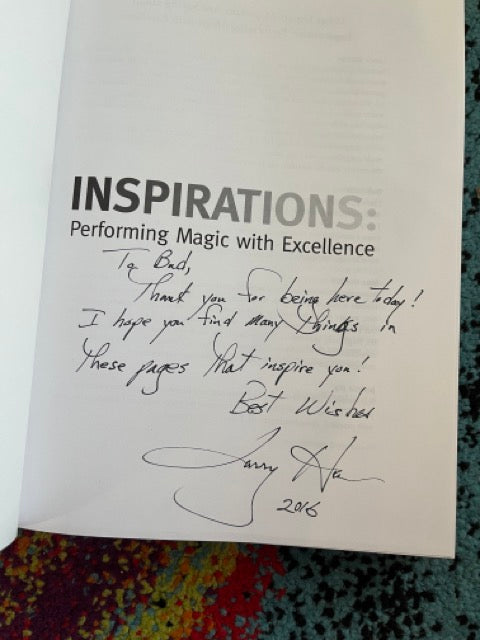 INSPIRATIONS:
Performing Magic with Excellence
To Bud,
Thank you for being here today!
I hope you find many things in
these pages that inspire you!
Best Wishes
Larry
2016